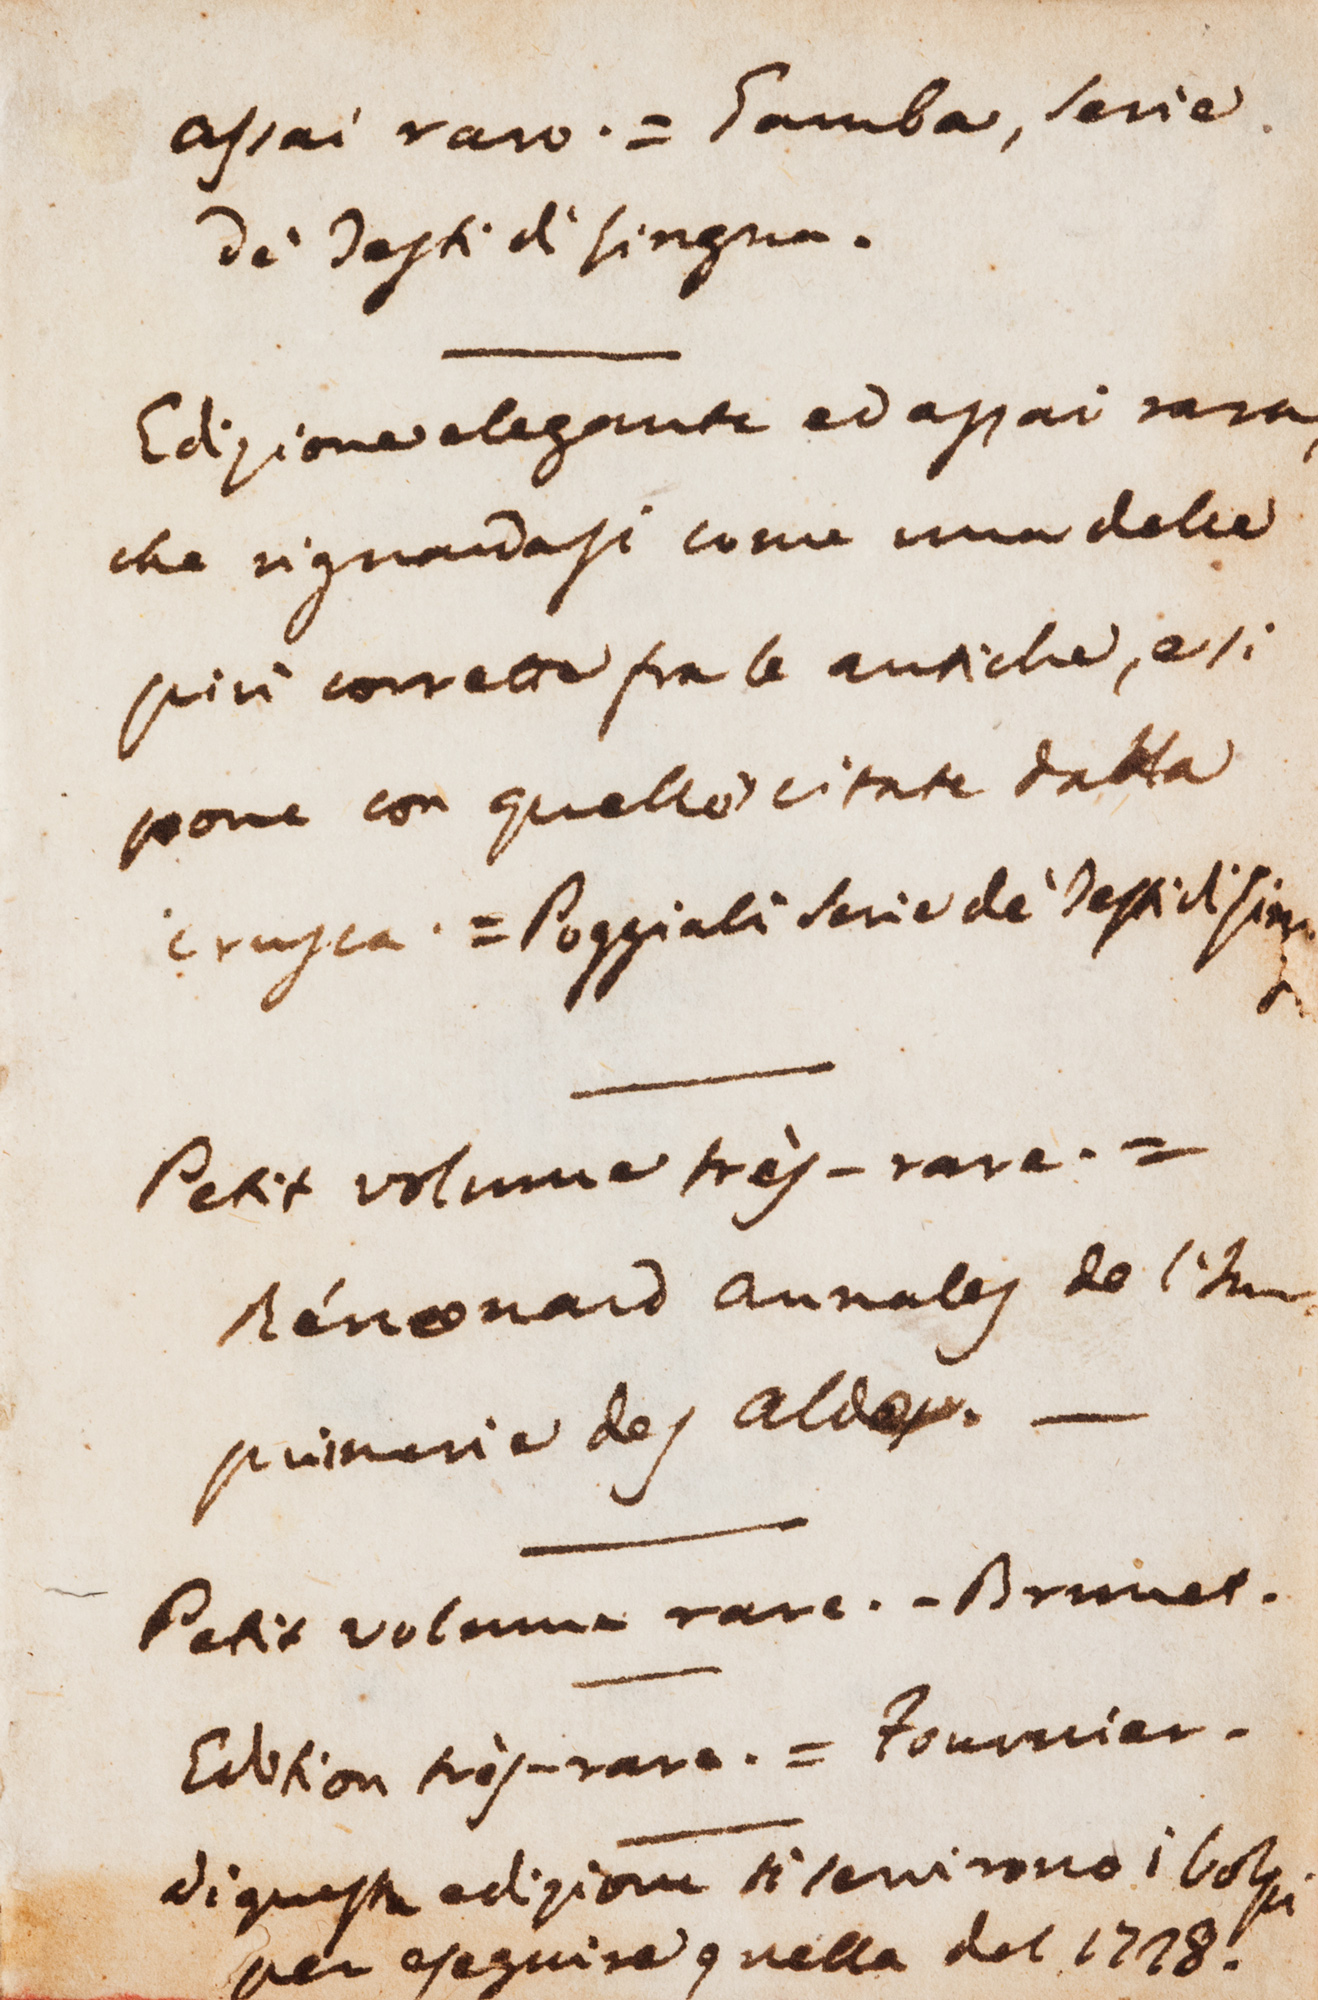 assai raro. = Gamba, serie
de' Testi di Lingua.
Edizione elegante ed assai rara,
che riguardasi come una delle
più corrette fra le antiche, e si
pone con quelle citate dalla
crusca. = Poggiali serie de' Testi di Ling
Petit volume très-rare. =
Rénouard annales de l'Im
primerie des Aldes. —
Petit volume rare. - Brunet.
Edition très-rare. = Fournier -
di questa edizione si servirono i Volpi
per eseguire quella del 1728.